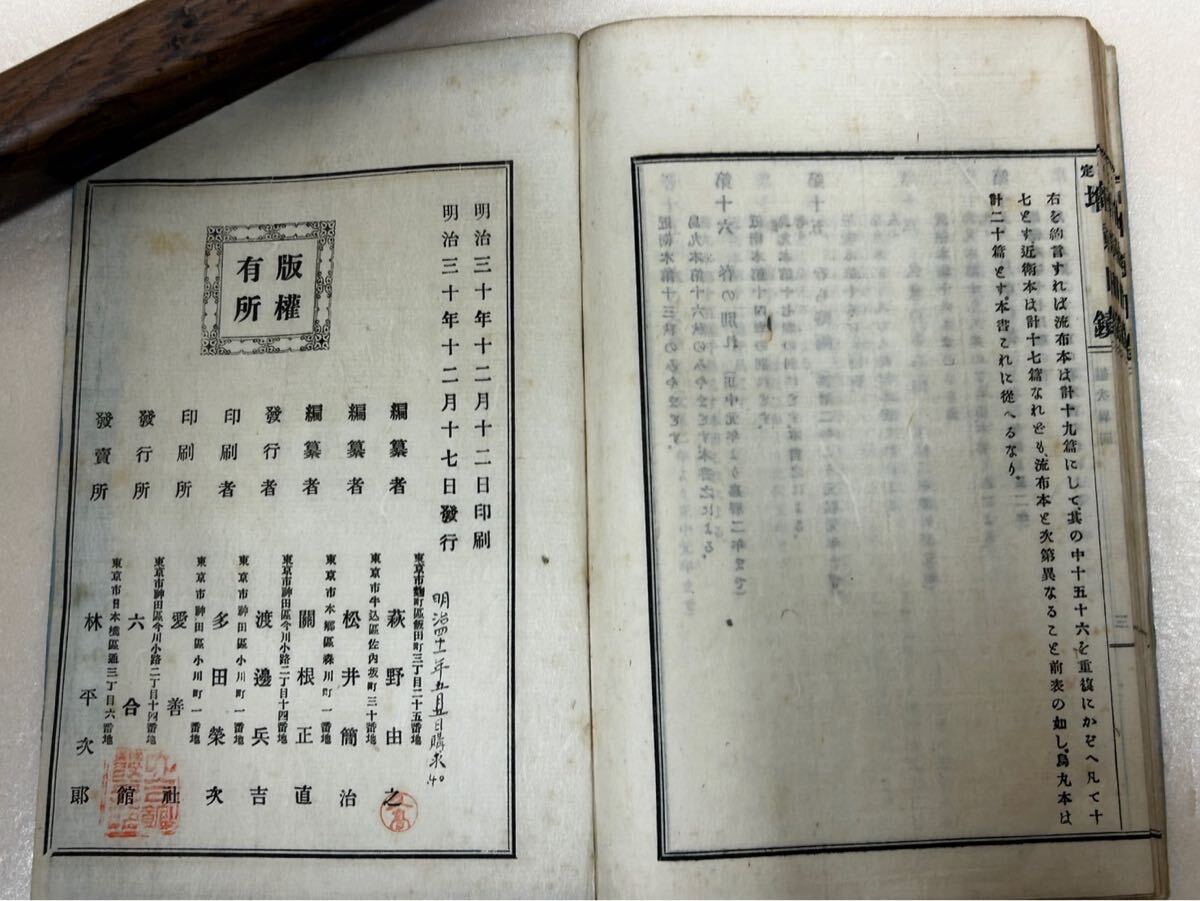 定
増
鏡
右を約言すれば流布本は計十九篇にして、其の中十五十六を重復にかぞへ凡て十
七とす、近衛本は計十七篇なれども、流布本と次第異なること前表の如し、烏丸本は
計二十篇とす、本書これに從へるなり。
明治三十年十二月十二日印刷
明治三十年十二月十七日發行
版權
有所
明治四十一年五月五日購求
編纂者 東京市麴町區飯田町三丁目二十五番地 萩野由之
編纂者 東京市牛込區佐内坂町三十番地 松井簡治
編纂者 東京市本鄕區森川町一番地 關根正直
發行者 東京市神田區今川小路二丁目十四番地 渡邊兵吉
印刷者 東京市神田區小川町一番地 多田榮次
印刷所 東京市神田區小川町一番地 愛善社
發行所 東京市神田區今川小路二丁目十四番地 六合館
發賣所 東京市日本橋區通三丁目六番地 林平次郞